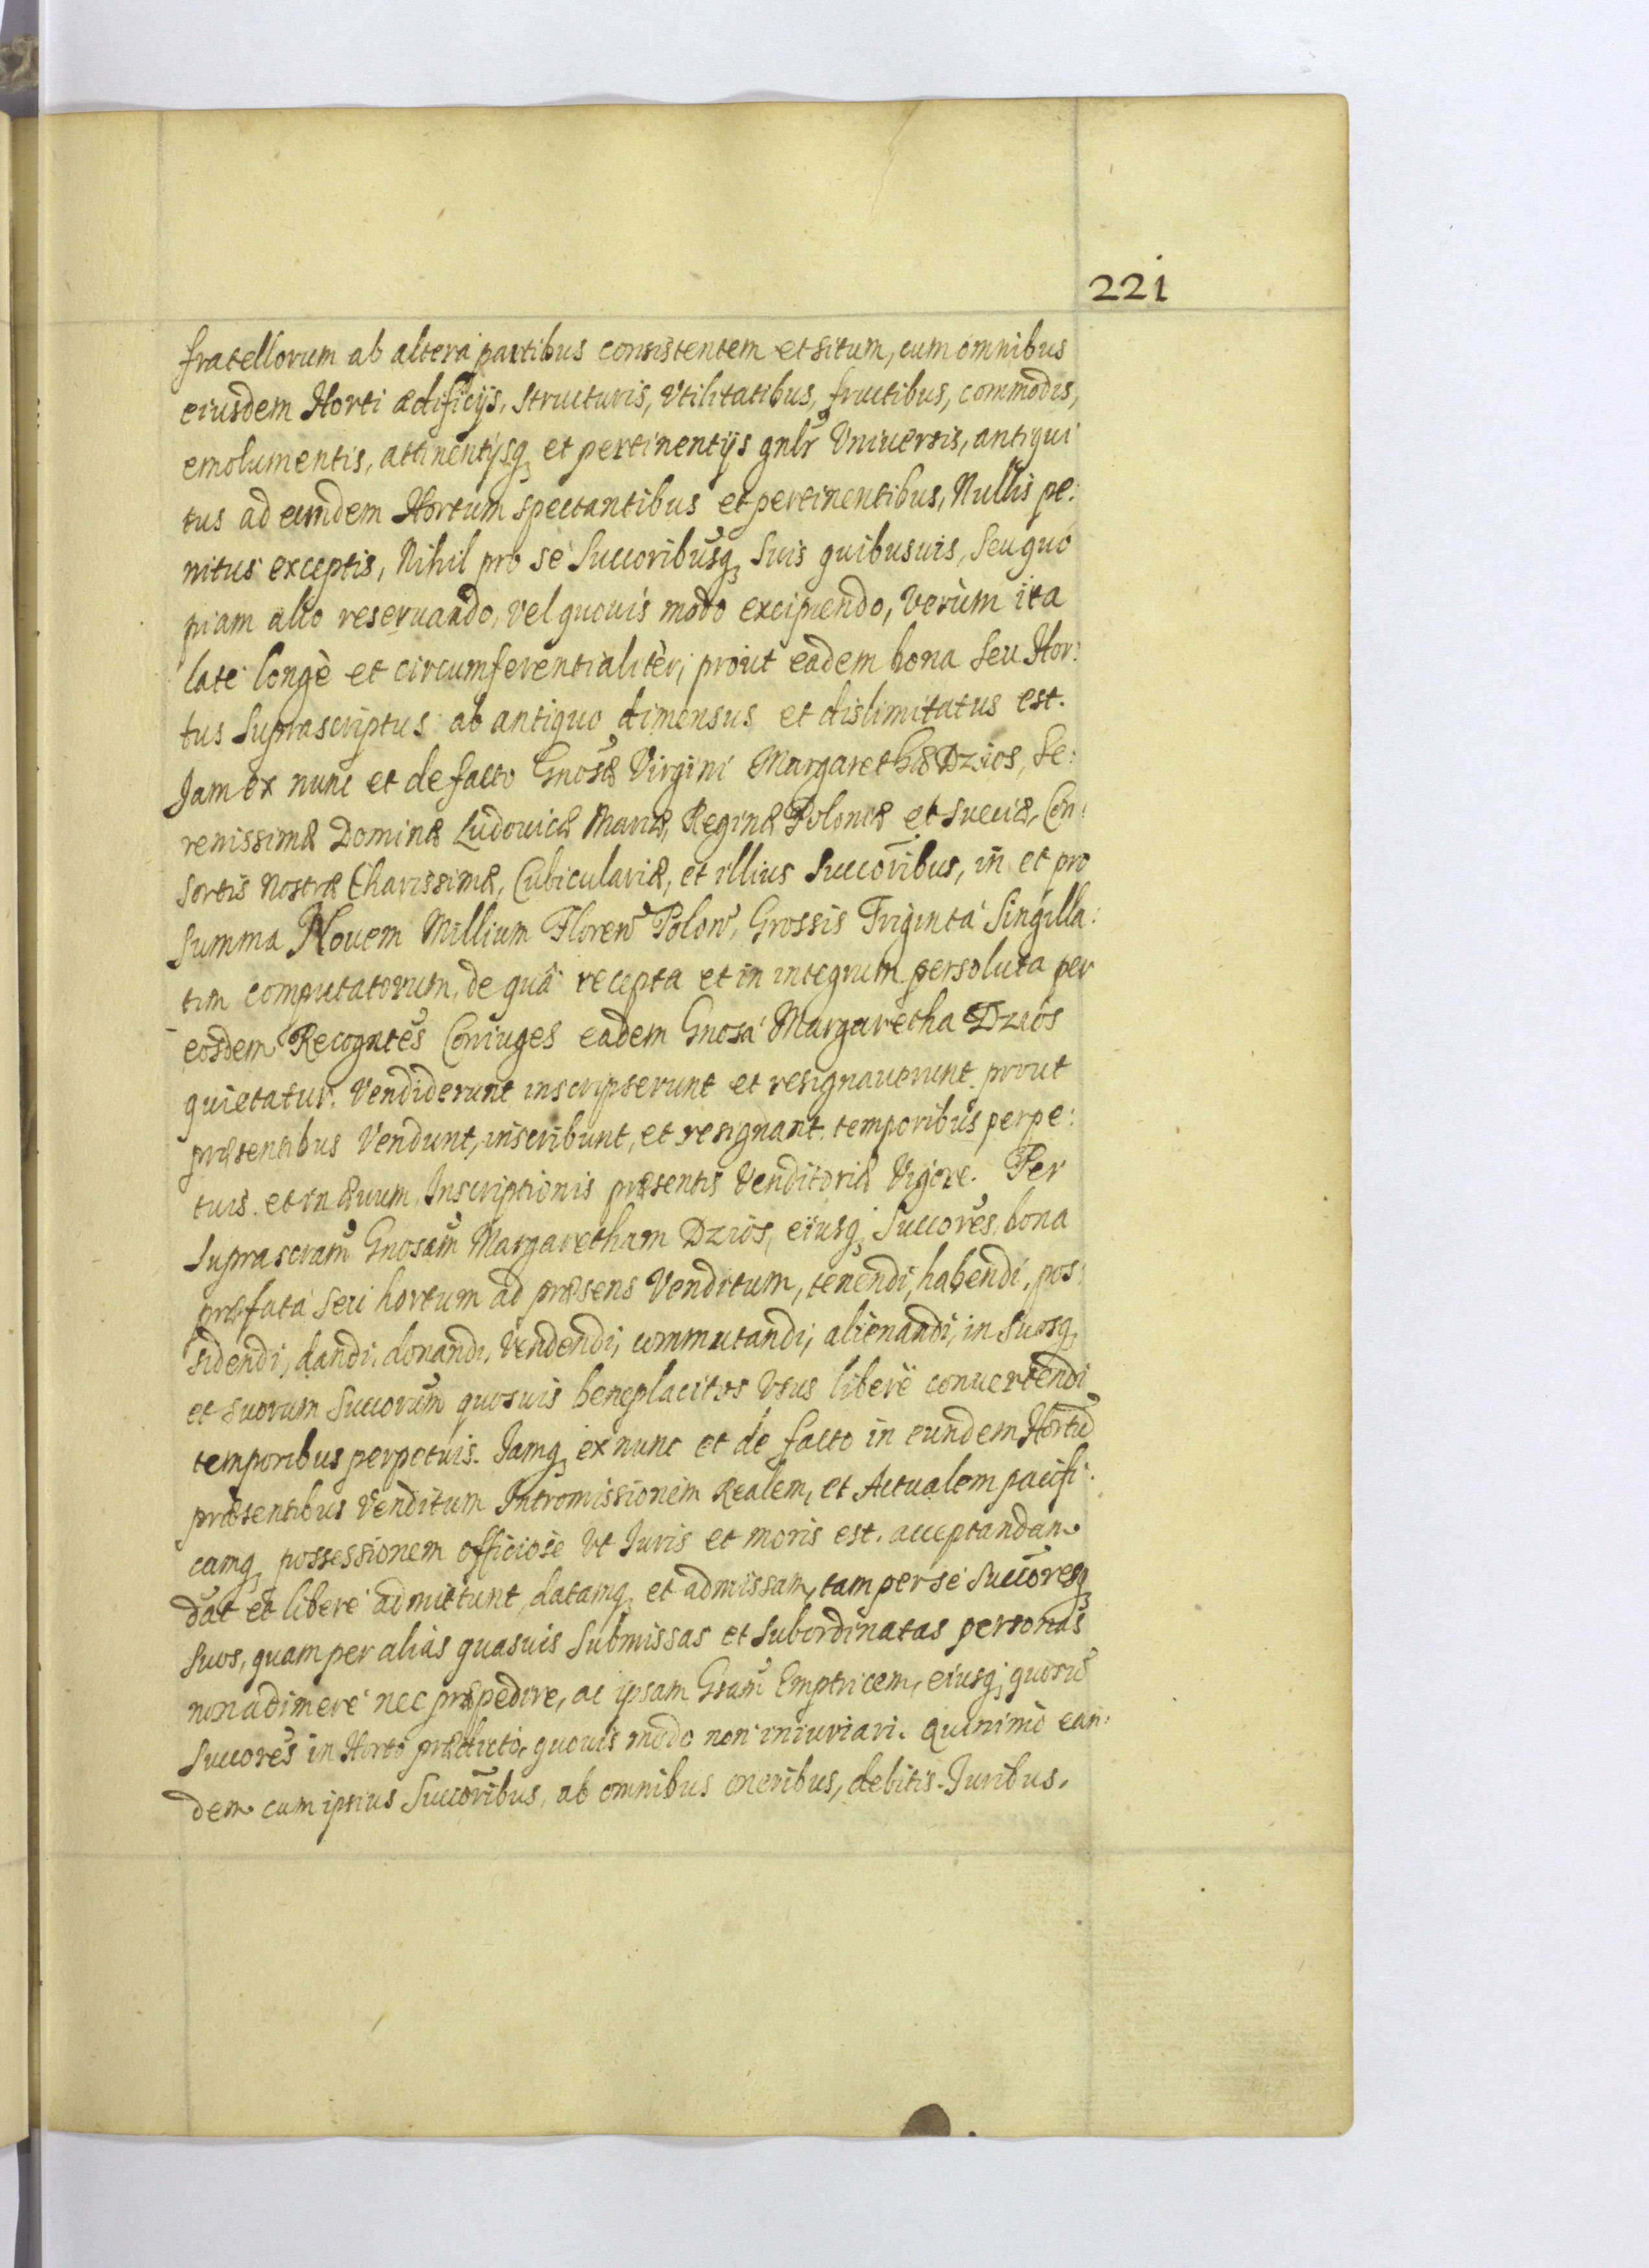 221
fratellorum ab altera partibus consistentem et situm, cum omnibus
eiusdem Horti ædificijs, structuris, Vtilitatibus, fructibus, commodis,
emolumentis, attinentijsq; et pertinentijs gnlr Vniuersis, antiqui
tus ad eundem Hortum spectantibus et pertinentibus, Nullis pe:
nitus exceptis, Nihil pro se Succoribusq; Suis quibusuis, Seu quo
piam alio reseruando, vel quouis modo excipiendo, Verùm ita
late longè et circumferentialitèr, prout eadem bona Seu Hor:
tus Suprascriptus ab antiquo dimensus et dislimitatus est.
Jam ex nunc et de facto Gnosæ Virgini Margarethæ Dzios, Se:
renissimæ Dominæ Ludouicæ Mariæ, Reginæ Poloniæ et Sueciæ, Con:
sortis Nostræ Charissimæ, Cubiculariæ, et illius Succoribus, in et pro
Summa Nouem Millium Floren Polon, Grossis Triginta Singilla:
tim computatorum, de quâ recepta et in integrum persoluta per
eosdem Recogntes Coniuges eadem Gnosa Margaretha Dzios
quietatur. Vendiderunt inscripserunt et resignauerunt prout
præsentibus Vendunt, inscribunt, et resignant temporibus perpe:
tuis et in æuum Inscriptionis præsentis Venditoriæ Vigore. Per
Suprascram Gnosam Margaretham Dzios, eiusq; Succores, bona
præfata seu hortum ad præsens Venditum, tenendi, habendi, pos:
sidendi, dandi, donandi, Vendendi, commutandi, alienandi, in Suosq;
et suorum Succorum quosuis beneplacitos Vsus liberè conuertendi
temporibus perpetuis. Jamq; ex nunc et de facto in eundem Hortu
præsentibus Venditum Intromissionem Realem, et Actualem pacifi:
camq; possessionem officiose Vt Juris et moris est, acceptandam
dat et libere admittunt, datamq; et admissam, tam per se Succoresq;
Suos, quam per alias quasuis Submissas et Subordinatas personas
non adimere nec præpedire, ac ipsam Gsam Emptricem, eiusq; quosuis
Succores in Horto prædicto, quouis modo non iniuriari. Quinimo ean:
dem cum ipsius Succoribus, ab omnibus oneribus, debitis, Juribus,